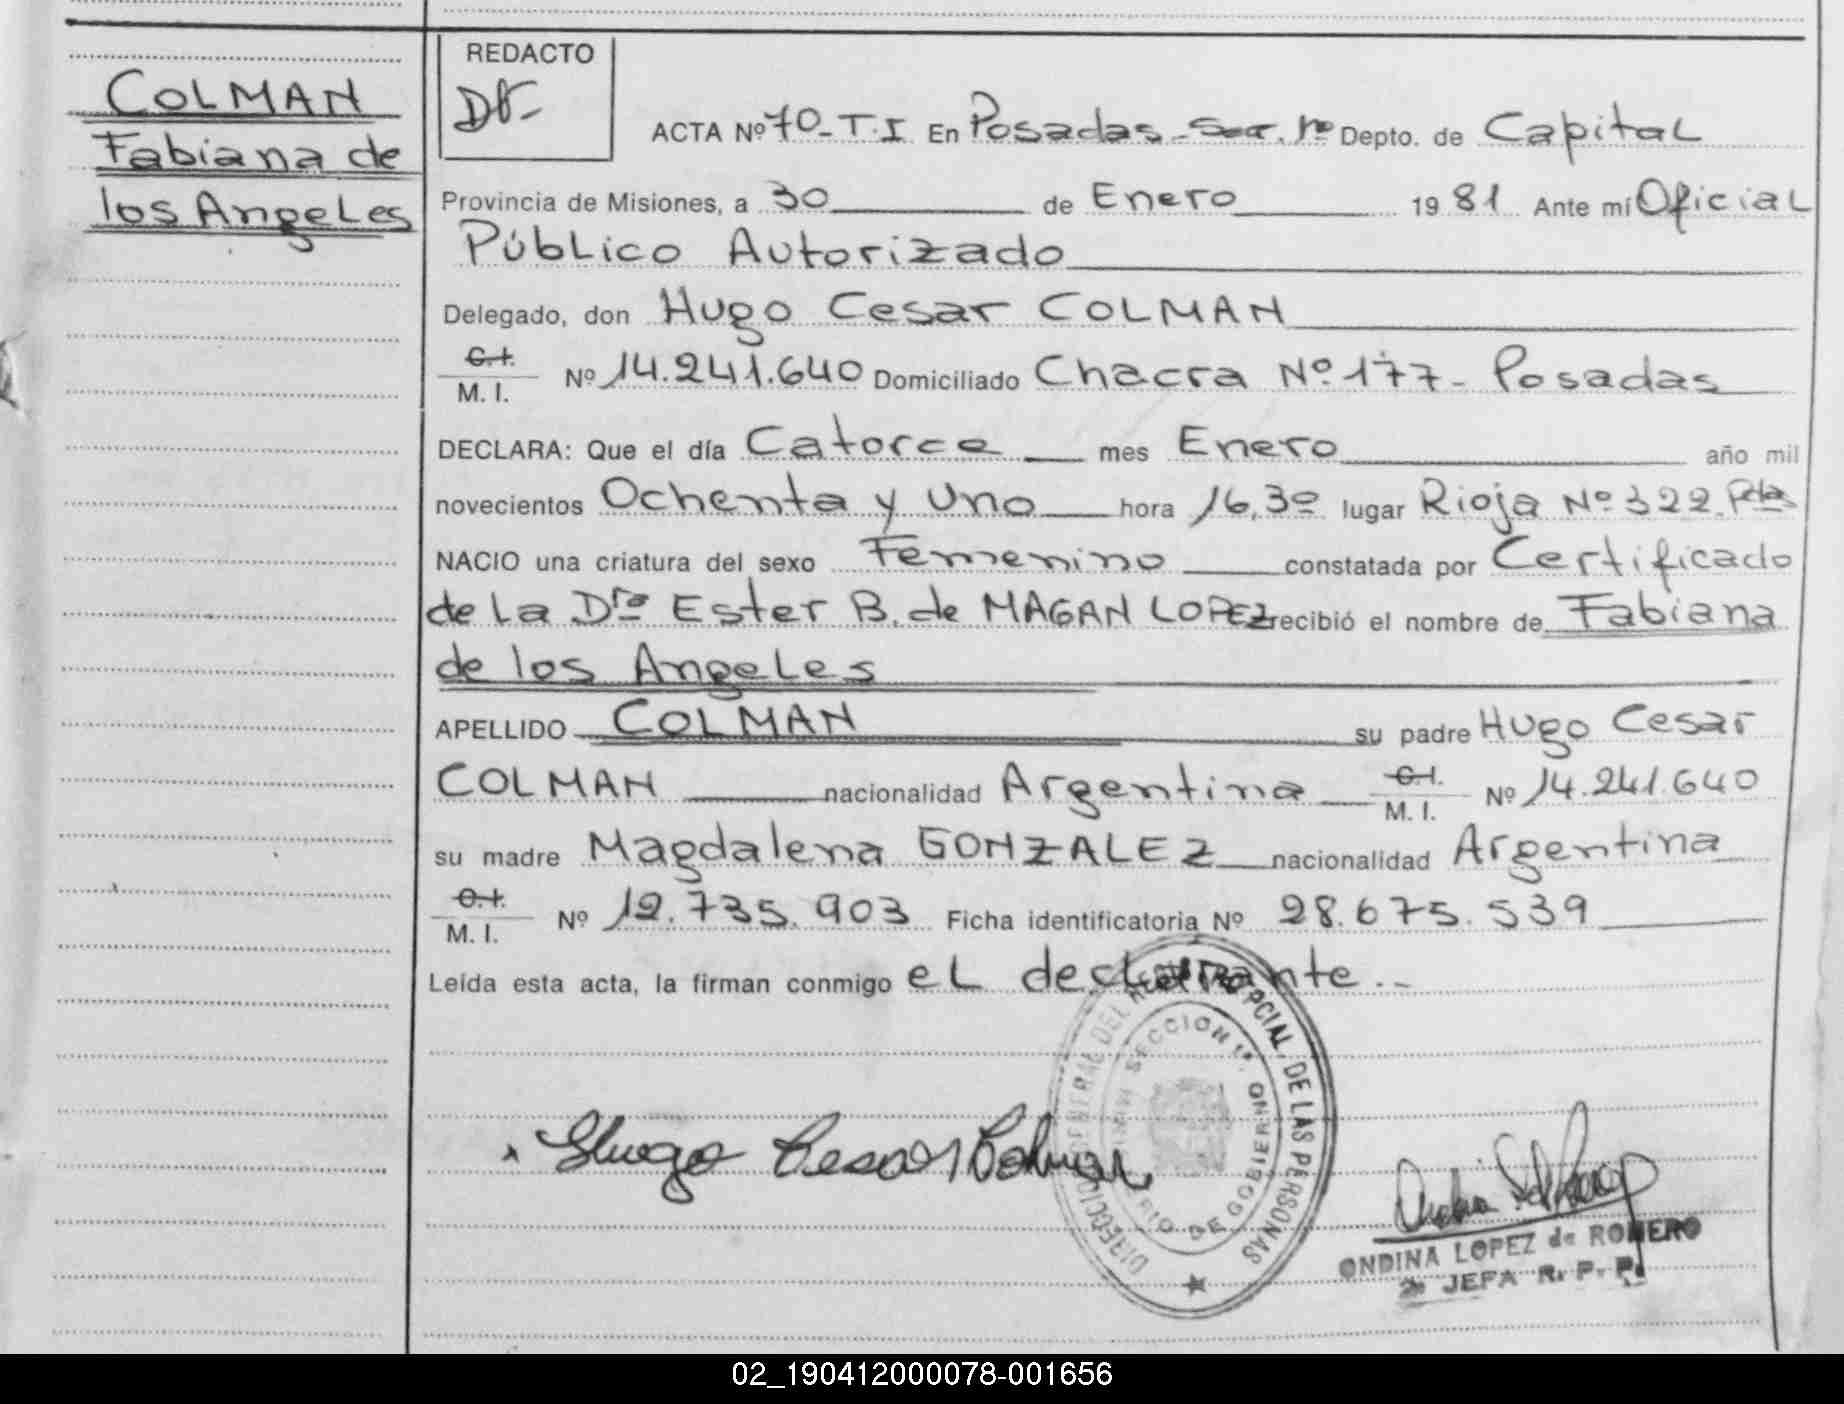 COLMAN
Fabiana de
los Angeles
REDACTO
ACTA Nº 70-T.I En Posadas-Secc. 1ª Depto. de Capital
Provincia de Misiones, a 30 de Enero 1981 Ante mí Oficial
Público Autorizado
Delegado, don Hugo Cesar COLMAN
C.I.
M. I. Nº 14.241.640 Domiciliado Chacra Nº 177- Posadas
DECLARA: Que el día Catorce mes Enero año mil
novecientos Ochenta y uno hora 16,30 lugar Rioja Nº 322. Pdas
NACIO una criatura del sexo Femenino constatada por Certificado
de La Dra Ester B. de MAGAN LOPEZ recibió el nombre de Fabiana
de los Angeles
APELLIDO COLMAN su padre Hugo Cesar
COLMAN nacionalidad Argentina C.I. M. I. Nº 14.241.640
su madre Magdalena GONZALEZ nacionalidad Argentina
C.I.
M. I. Nº 12.735.903 Ficha identificatoria Nº 28.675.539
Leída esta acta, la firman conmigo el declarante.-
Hugo Cesar Colman
DIRECCION GENERAL DEL PROVINCIAL DE LAS PERSONAS
SECCION 1ª
DE GOBIERNO
ONDINA LOPEZ de ROMERO
2ª JEFA R. P. P.
02_190412000078-001656